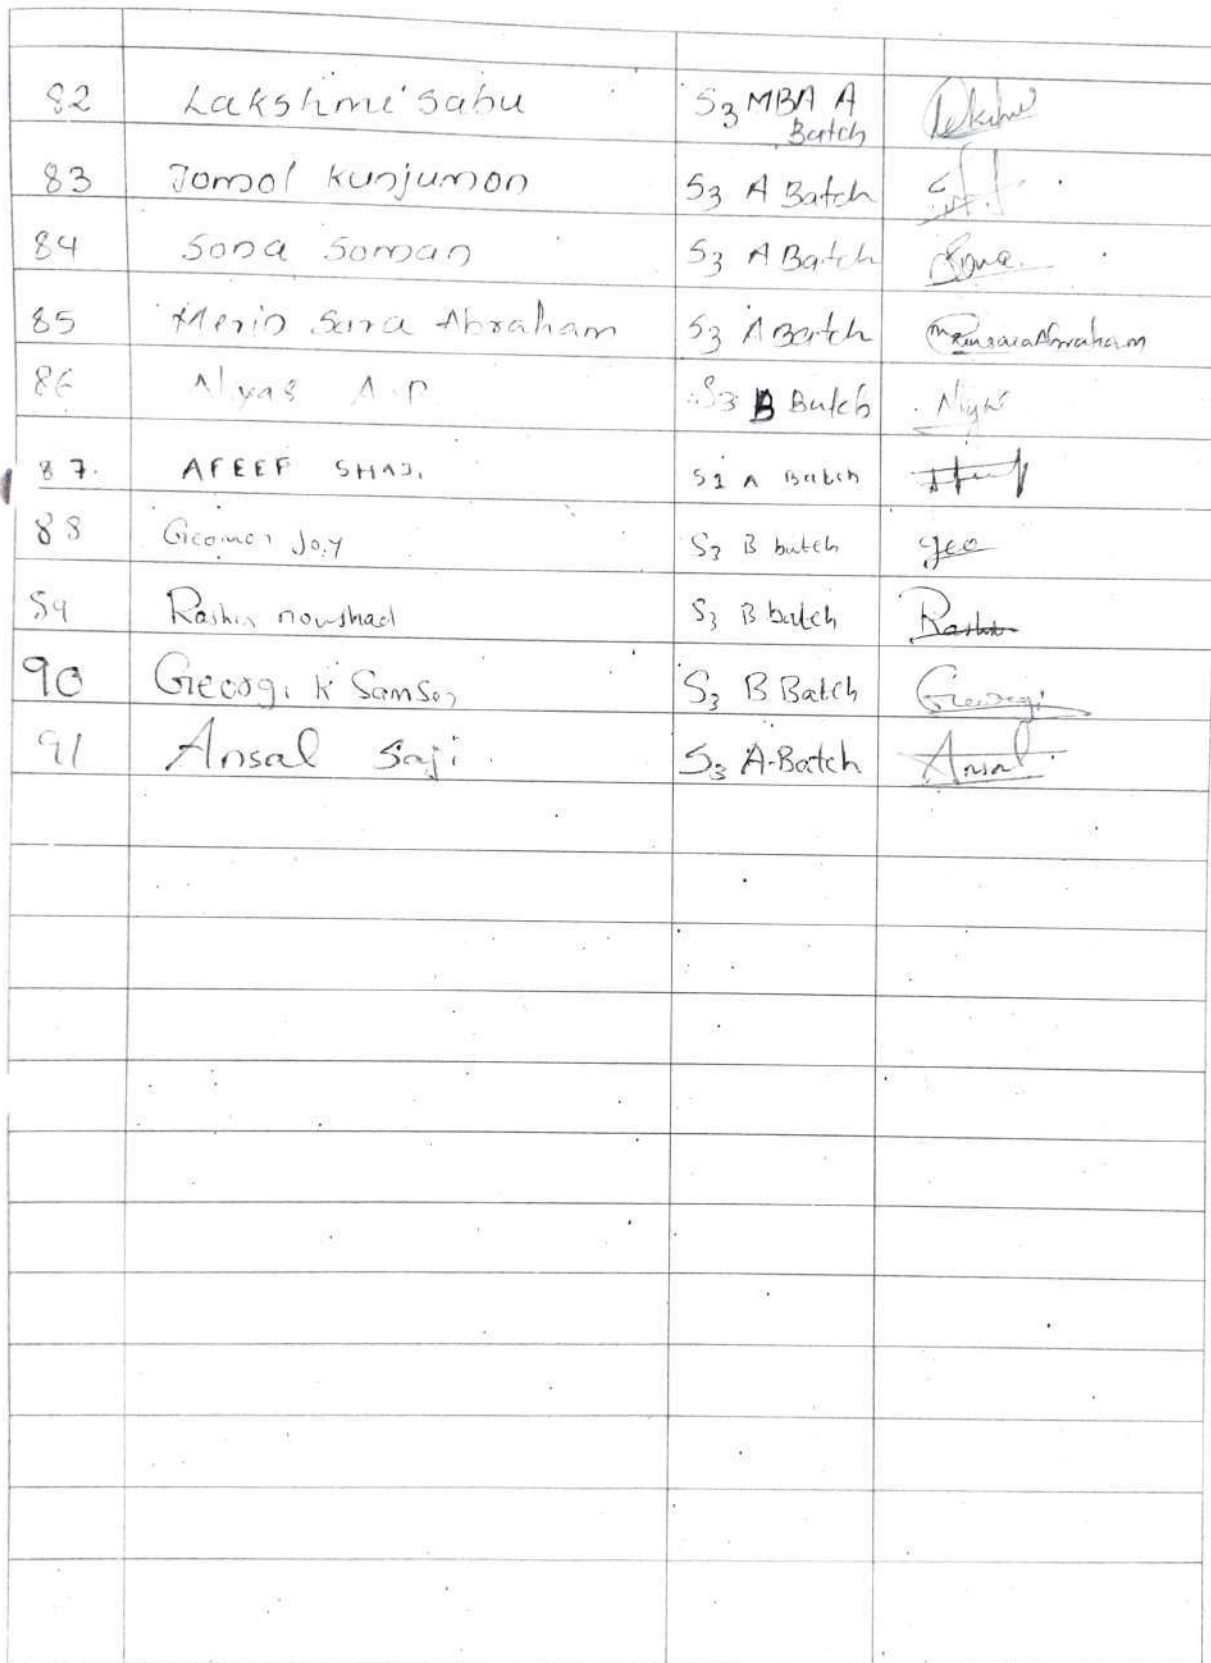 82 Lakshmi Sabu S3 MBA A
Batch
83 Jomol Kunjumon S3 A Batch
84 Sona Soman S3 A Batch Sona
85 Merin Sara Abraham S3 A Batch Merin Sara Abraham
86 Niyas A.P S3 B Batch Niyas
87. AFEEF SHAJI S1 A Batch
88 Geomon Joy S3 B batch geo
89 Rashin nowshad S3 B batch Rashin
90 Georgi K Samson S3 B Batch Georgi
91 Ansal Saji S3 A-Batch Ansal